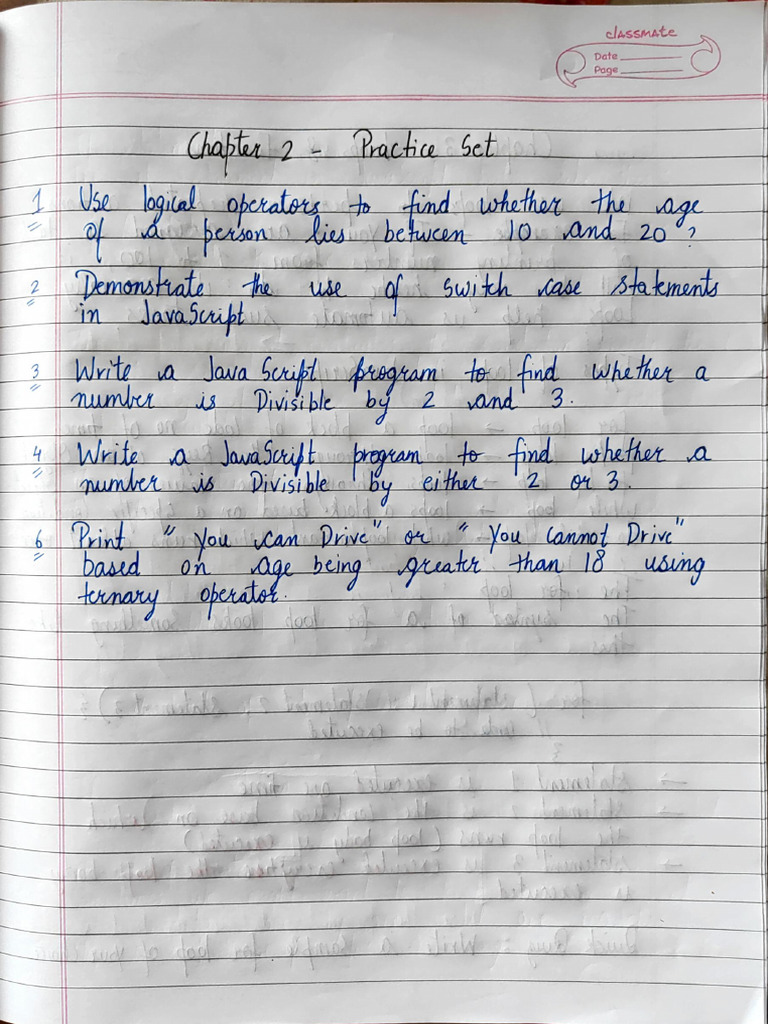 classmate
Date
Page
Chapter 2 - Practice Set
1 Use logical operators to find whether the age
of a person lies between 10 and 20?
2 Demonstrate the use of switch case statements
in JavaScript
3 Write a Java Script program to find whether a
number is Divisible by 2 and 3.
4 Write a JavaScript program to find whether a
number is Divisible by either 2 or 3.
6 Print "You can Drive" or "You cannot Drive"
based on age being greater than 18 using
ternary operator.